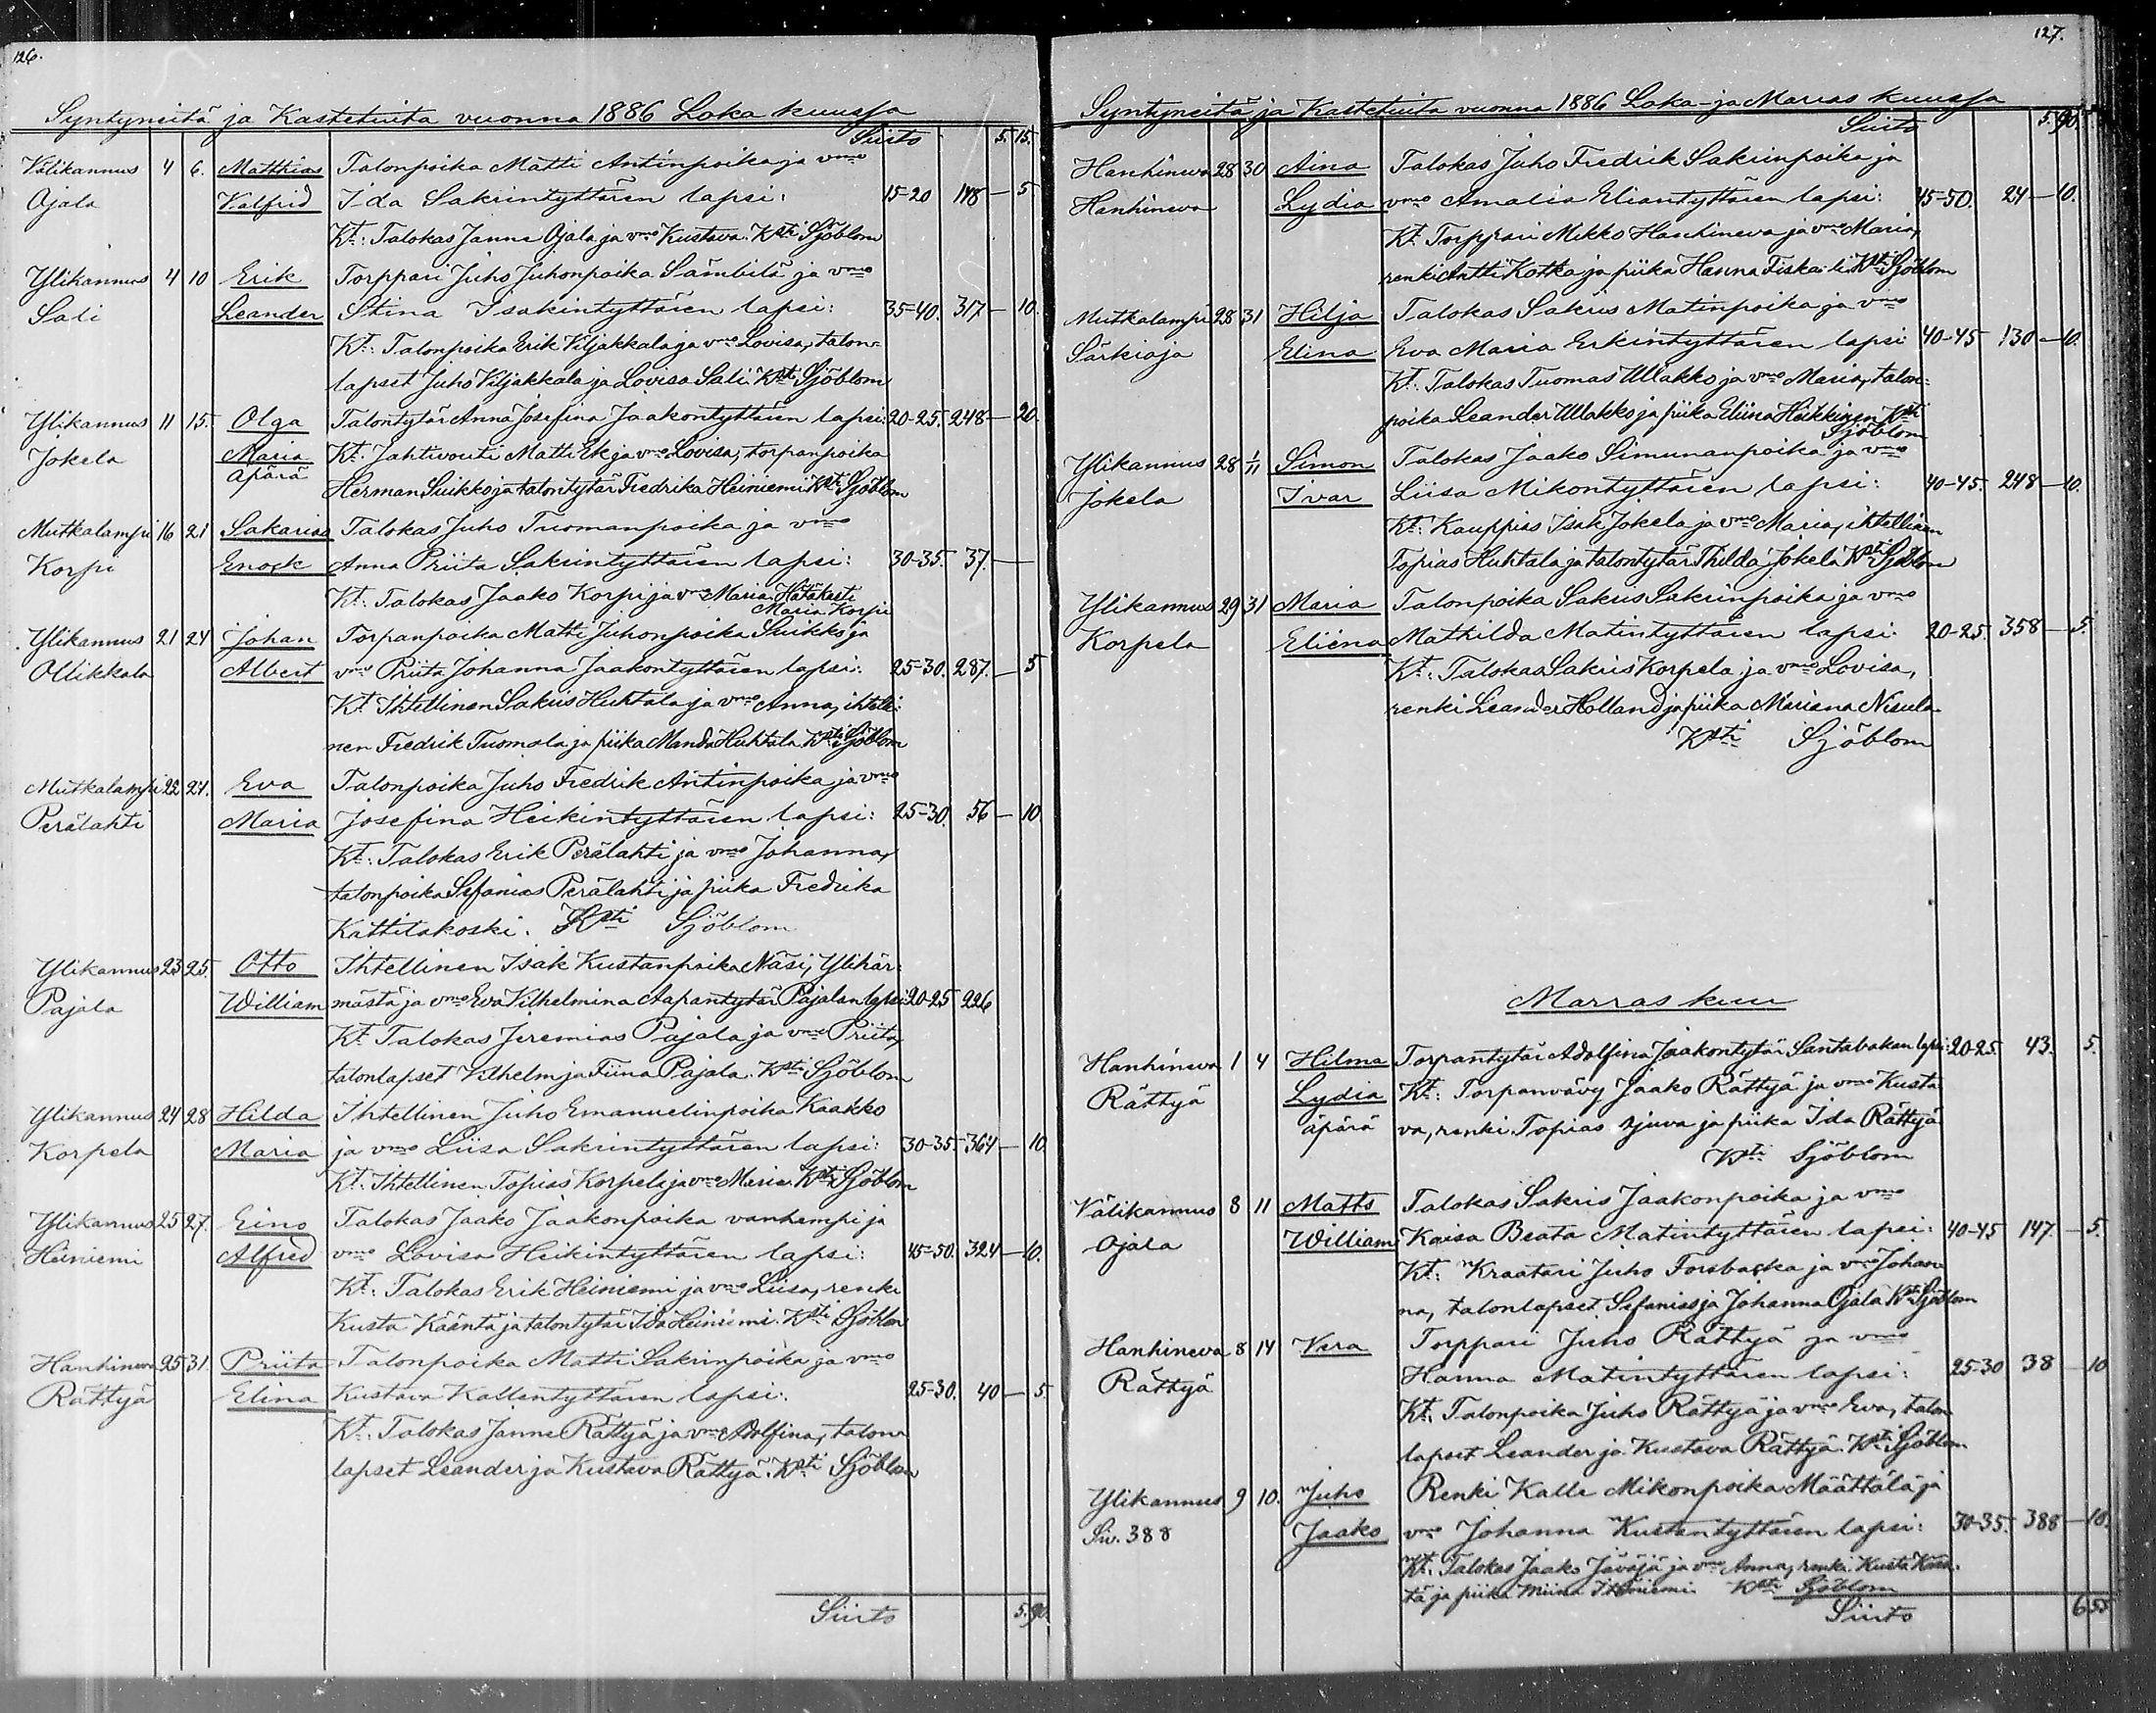 126.
Syntyneitä ja Kastetuita vuonna 1886 Loka kuussa
Siirto 5. 15.
Välikannus 4 6. Matthias Talonpoika Matti Antinpoika ja vmo
Ojala Valfrid Ida Sakrintyttären lapsi: 15-20 148 — 5
Kt: Talokas Janne Ojala ja vmo Kustava. Ksti Sjöblom
Ylikannus 4 10 Erik Torppari Juho Juhonpoika Sämbilä ja vmo
Sali Leander Stina Isakintyttären lapsi: 35-40. 317 — 10.
Kt: Talonpoika Erik Viljakkala ja vmo Lovisa, talon-
lapset Juho Viljakkala ja Lovisa Sali. Ksti Sjöblom
Ylikannus 11 15. Olga Talontytär Anna Josefina Jaakontyttären lapsi: 20-25. 248 — 20.
Jokela Maria Kt: Jahtivouti Matti Ek ja vmo Lovisa, torpanpoika
äpärä Herman Suikko ja talontytär Fredrika Heiniemi Ksti Sjöblom
Mutkalampi 16 21 Sakarias Talokas Juho Tuomanpoika ja vmo
Korpi Enock Anna Priita Sakrintyttären lapsi: 30-35. 37. —
Kt: Talokas Jaako Korpi ja vmo Maria Hätäkasti
Maria Korpi
Ylikannus 21 24 Johan Torpanpoika Matti Juhonpoika Suikko ja
Ollikkala Albert vmo Priita Johanna Jaakontyttären lapsi: 25-30. 287. — 5
Kt Ihtellinen Sakris Huhtala ja vmo Anna, ihtelli-
nen Fredrik Tuomola ja piika Manda Huhtala Ksti Sjöblom
Mutkalampi 22 24. Eva Talonpoika Juho Fredrik Antinpoika ja vmo
Perälahti Maria Josefina Heikintyttären lapsi: 25-30. 56 — 10.
Kt: Talokas Erik Perälahti ja vmo Johanna,
talonpoika Sefanias Perälahti ja piika Fredrika
Kattilakoski. Ksti Sjöblom
Ylikannus 23 25. Otto Ihtellinen Isak Kustanpoika Näsi, Ylihär-
Pajala William mästä ja vmo Eva Vilhelmina Aapantytär Pajalan lapsi 20-25 226
Kt Talokas Jeremias Pajala ja vmo Priita,
talonlapset Vilhelm ja Fiina Pajala. Ksti Sjöblom
Ylikannus 24 28 Hilda Ihtellinen Juho Emanuelinpoika Kaakko
Korpela Maria ja vmo Liisa Sakrintyttären lapsi: 30-35. 364 — 10.
Kt: Ihtellinen Topias Korpela ja vmo Maria. Ksti Sjöblom
Ylikannus 25 27. Eino Talokas Jaako Jaakonpoika vanhempi ja
Heiniemi Alfred vmo Lovisa Heikintyttären lapsi: 45-50. 324 — 10.
Kt: Talokas Erik Heiniemi ja vmo Liisa, renki
Kusta Kääntä ja talontytär Ida Heiniemi. Ksti Sjöblom
Hanhineva 25 31. Priita Talonpoika Matti Sakrinpoika ja vmo
Rättyä Elina Kustava Kallentyttären lapsi: 25-30. 40 — 5
Kt: Talokas Janne Rättyä ja vmo Adolfina, talon-
lapset Leander ja Kustava Rättyä. Ksti Sjöblom
Siirto 5. 90.
127.
Syntyneitä ja Kastetuita vuonna 1886 Loka- ja Marras kuussa
Siirto 5. 90.
Hanhineva 28 30 Aina Talokas Juho Fredrik Sakrinpoika ja
Hanhineva Lydia vmo Amalia Eliantyttären lapsi: 45-50. 24 — 10.
Kt: Torppari Mikko Hanhineva ja vmo Maria,
renki Antti Kotka ja piika Hanna Fiska-li Ksti Sjöblom
Mutkalampi 28 31 Hilja Talokas Sakris Matinpoika ja vmo
Särkioja Elina Eva Maria Erkintyttären lapsi 40-45 130 — 10.
Kt: Talokas Tuomas Ullakko ja vmo Maria, talon-
poika Leander Ullakko ja piika Eliina Heikkinen Ksti
Sjöblom
Ylikannus 28 1/11 Simon Talokas Jaako Simunanpoika ja vmo
Jokela Ivar Liisa Mikontyttären lapsi: 40-45. 248 — 10.
Kt: Kauppias Isak Jokela ja vmo Maria, ihtellinen
Topias Huhtala ja talontytär Thilda Jokela Ksti Sjöblom
Ylikannus 29 31 Maria Talonpoika Sakris Sakrinpoika ja vmo
Korpela Eliena Mathilda Matintyttären lapsi: 20-25. 358 — 5.
Kt: Talokas Sakris Korpela ja vmo Lovisa,
renki Leander Holland ja piika Mariana Nisula
Ksti Sjöblom
Marras kuu
Hanhineva 1 4 Hilma Torpantytär Adolfina Jaakontytär Santabakan lapsi: 20-25. 43. 5.
Rättyä Lydia Kt: Torpanvävy Jaako Rättyä ja vmo Kusta
äpärä va, renki Topias Ajuva ja piika Ida Rättyä
Ksti Sjöblom
Välikannus 8 11 Matts Talokas Sakris Jaakonpoika ja vmo
Ojala William Kaisa Beata Matintyttären lapsi: 40-45 147. — 5.
Kt: Kraatari Juho Forsbacka ja vmo Johan-
na, talonlapset Sefanias ja Johanna Ojala Ksti Sjöblom
Hanhineva 8 14 Vera Torppari Juho Rättyä ja vmo
Rättyä Hanna Matintyttären lapsi: 25-30 38 — 10
Kt: Talonpoika Juho Rättyä ja vmo Eva, talon
lapset Leander ja Kustava Rättyä. Ksti Sjöblom
Ylikannus 9 10. Juho Renki Kalle Mikonpoika Määttälä ja
Siv. 388 Jaako vmo Johanna Kustantyttären lapsi: 30-35. 388 — 10.
Kt: Talokas Jaako Jäväjä ja vmo Anna, renki Kusta Kään-
tä ja piika Miina Itäniemi Ksti Sjöblom
Siirto 6 55